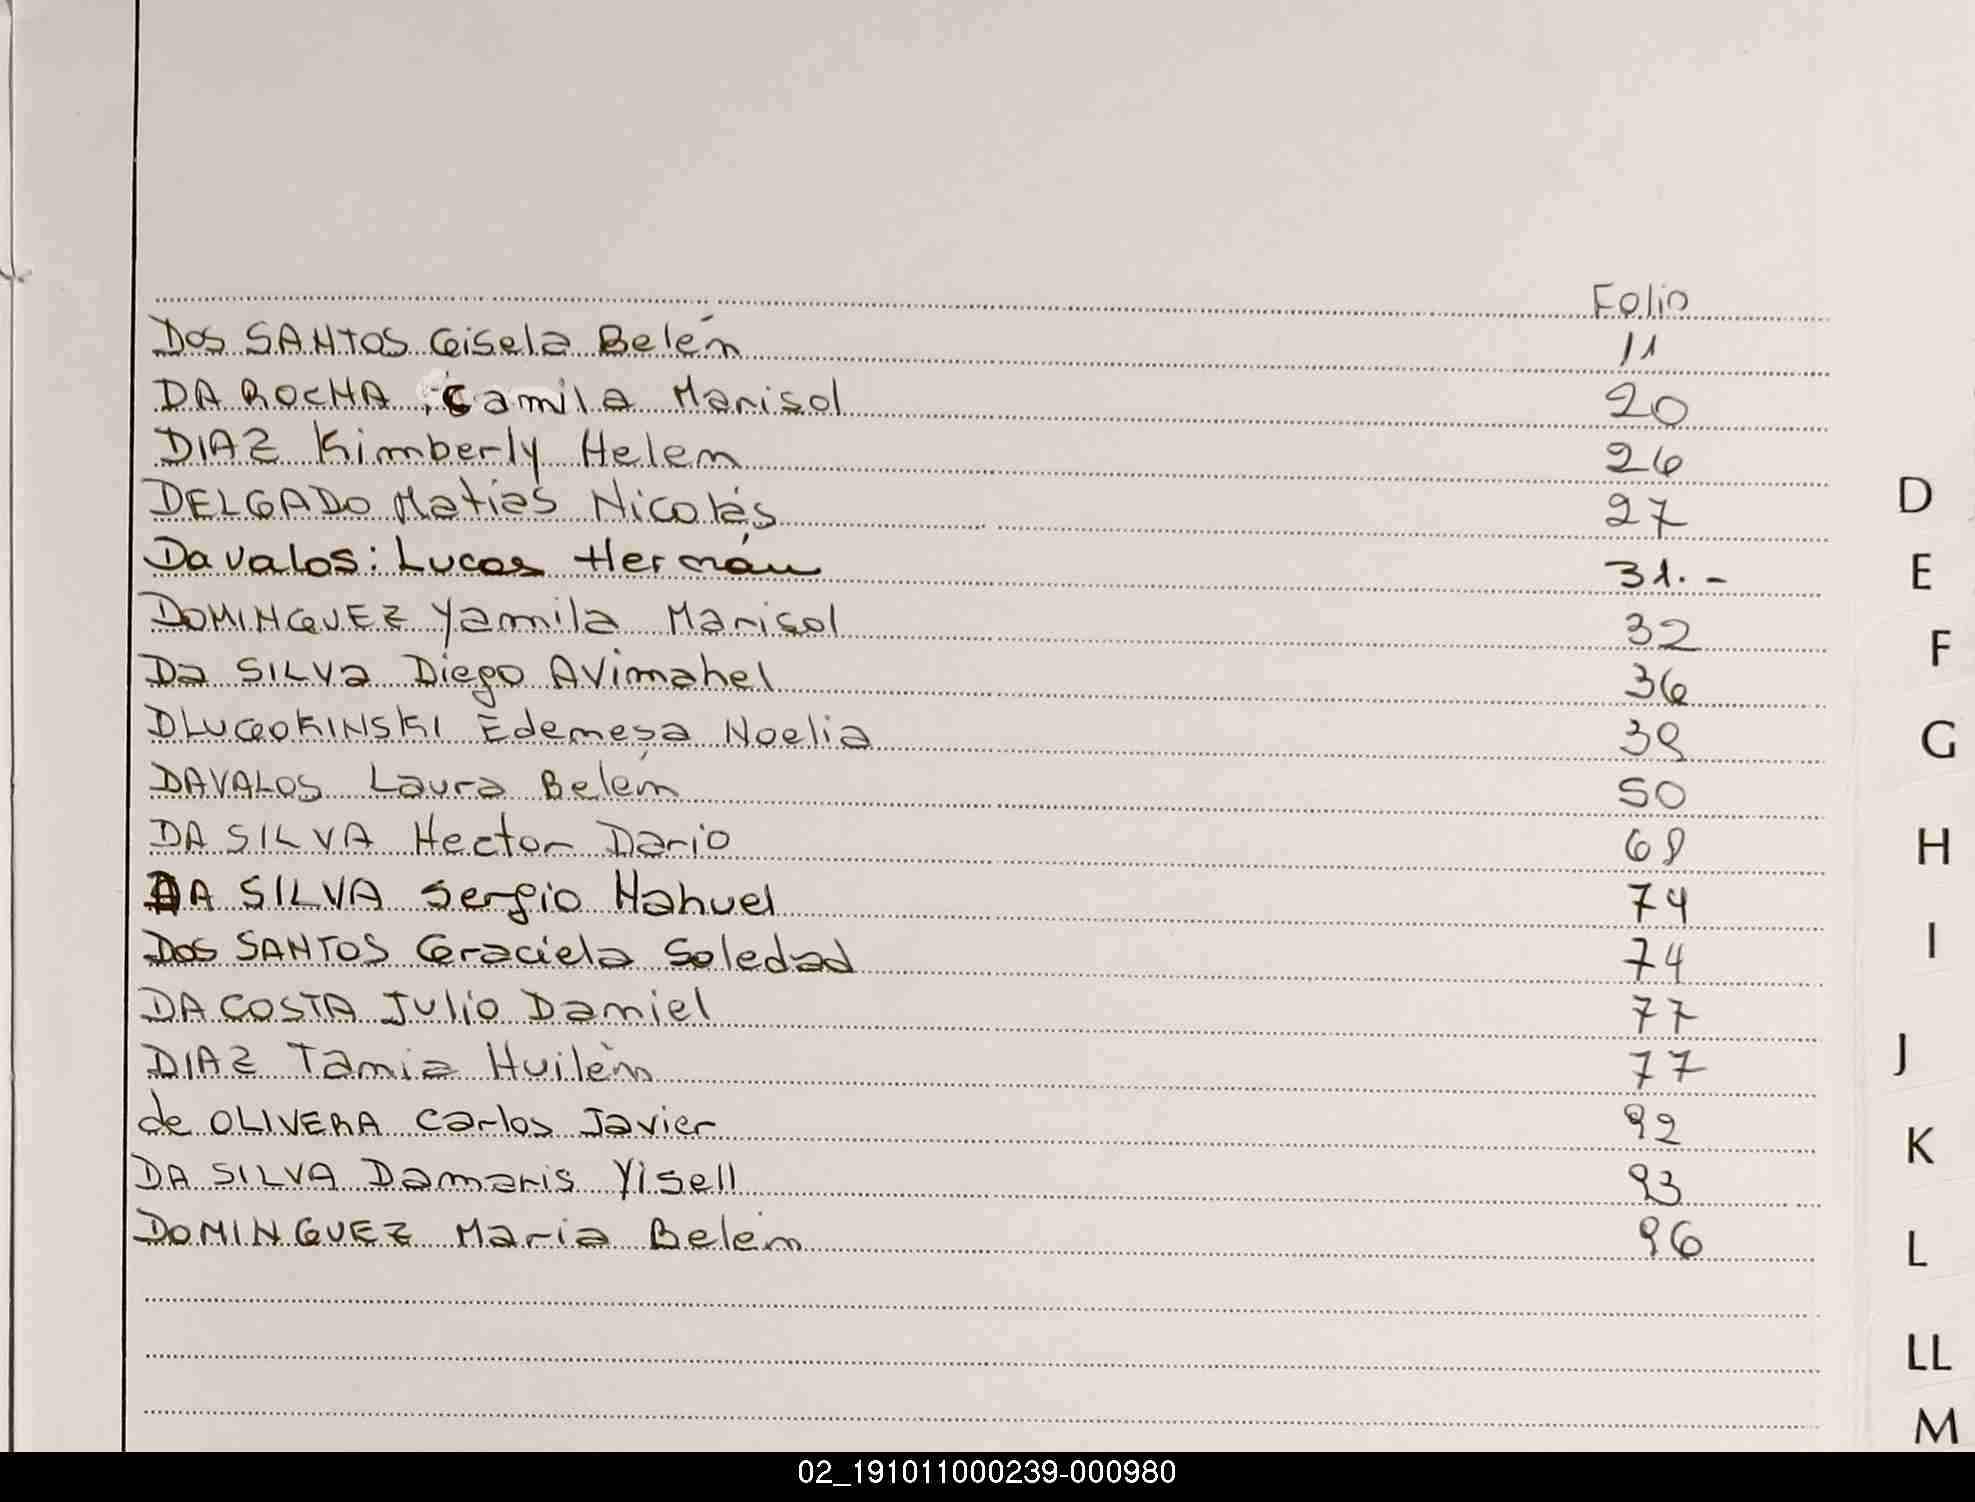 Folio
DOS SANTOS Gisela Belén 11
DA ROCHA, Camila Marisol 20
DIAZ Kimberly Helen 26
DELGADO Matías Nicolás 27
Davalos: Lucas Hernán 31.-
DOMINGUEZ Yamila Marisol 32
Da SILVa Diego Avimahel 36
DLUGOKINSKI Edemesa Noelia 39
DAVALOS Laura Belén 50
DA SILVA Hector Dario 69
DA SILVA Sergio Nahuel 74
DOS SANTOS Graciela Soledad 74
DA COSTA Julio Daniel 77
DIAZ Tamia Huilén 77
de OLIVERA Carlos Javier 92
DA SILVA Damaris Yisell 93
DOMINGUEZ Maria Belén 96
D
E
F
G
H
I
J
K
L
LL
M
02_191011000239-000980